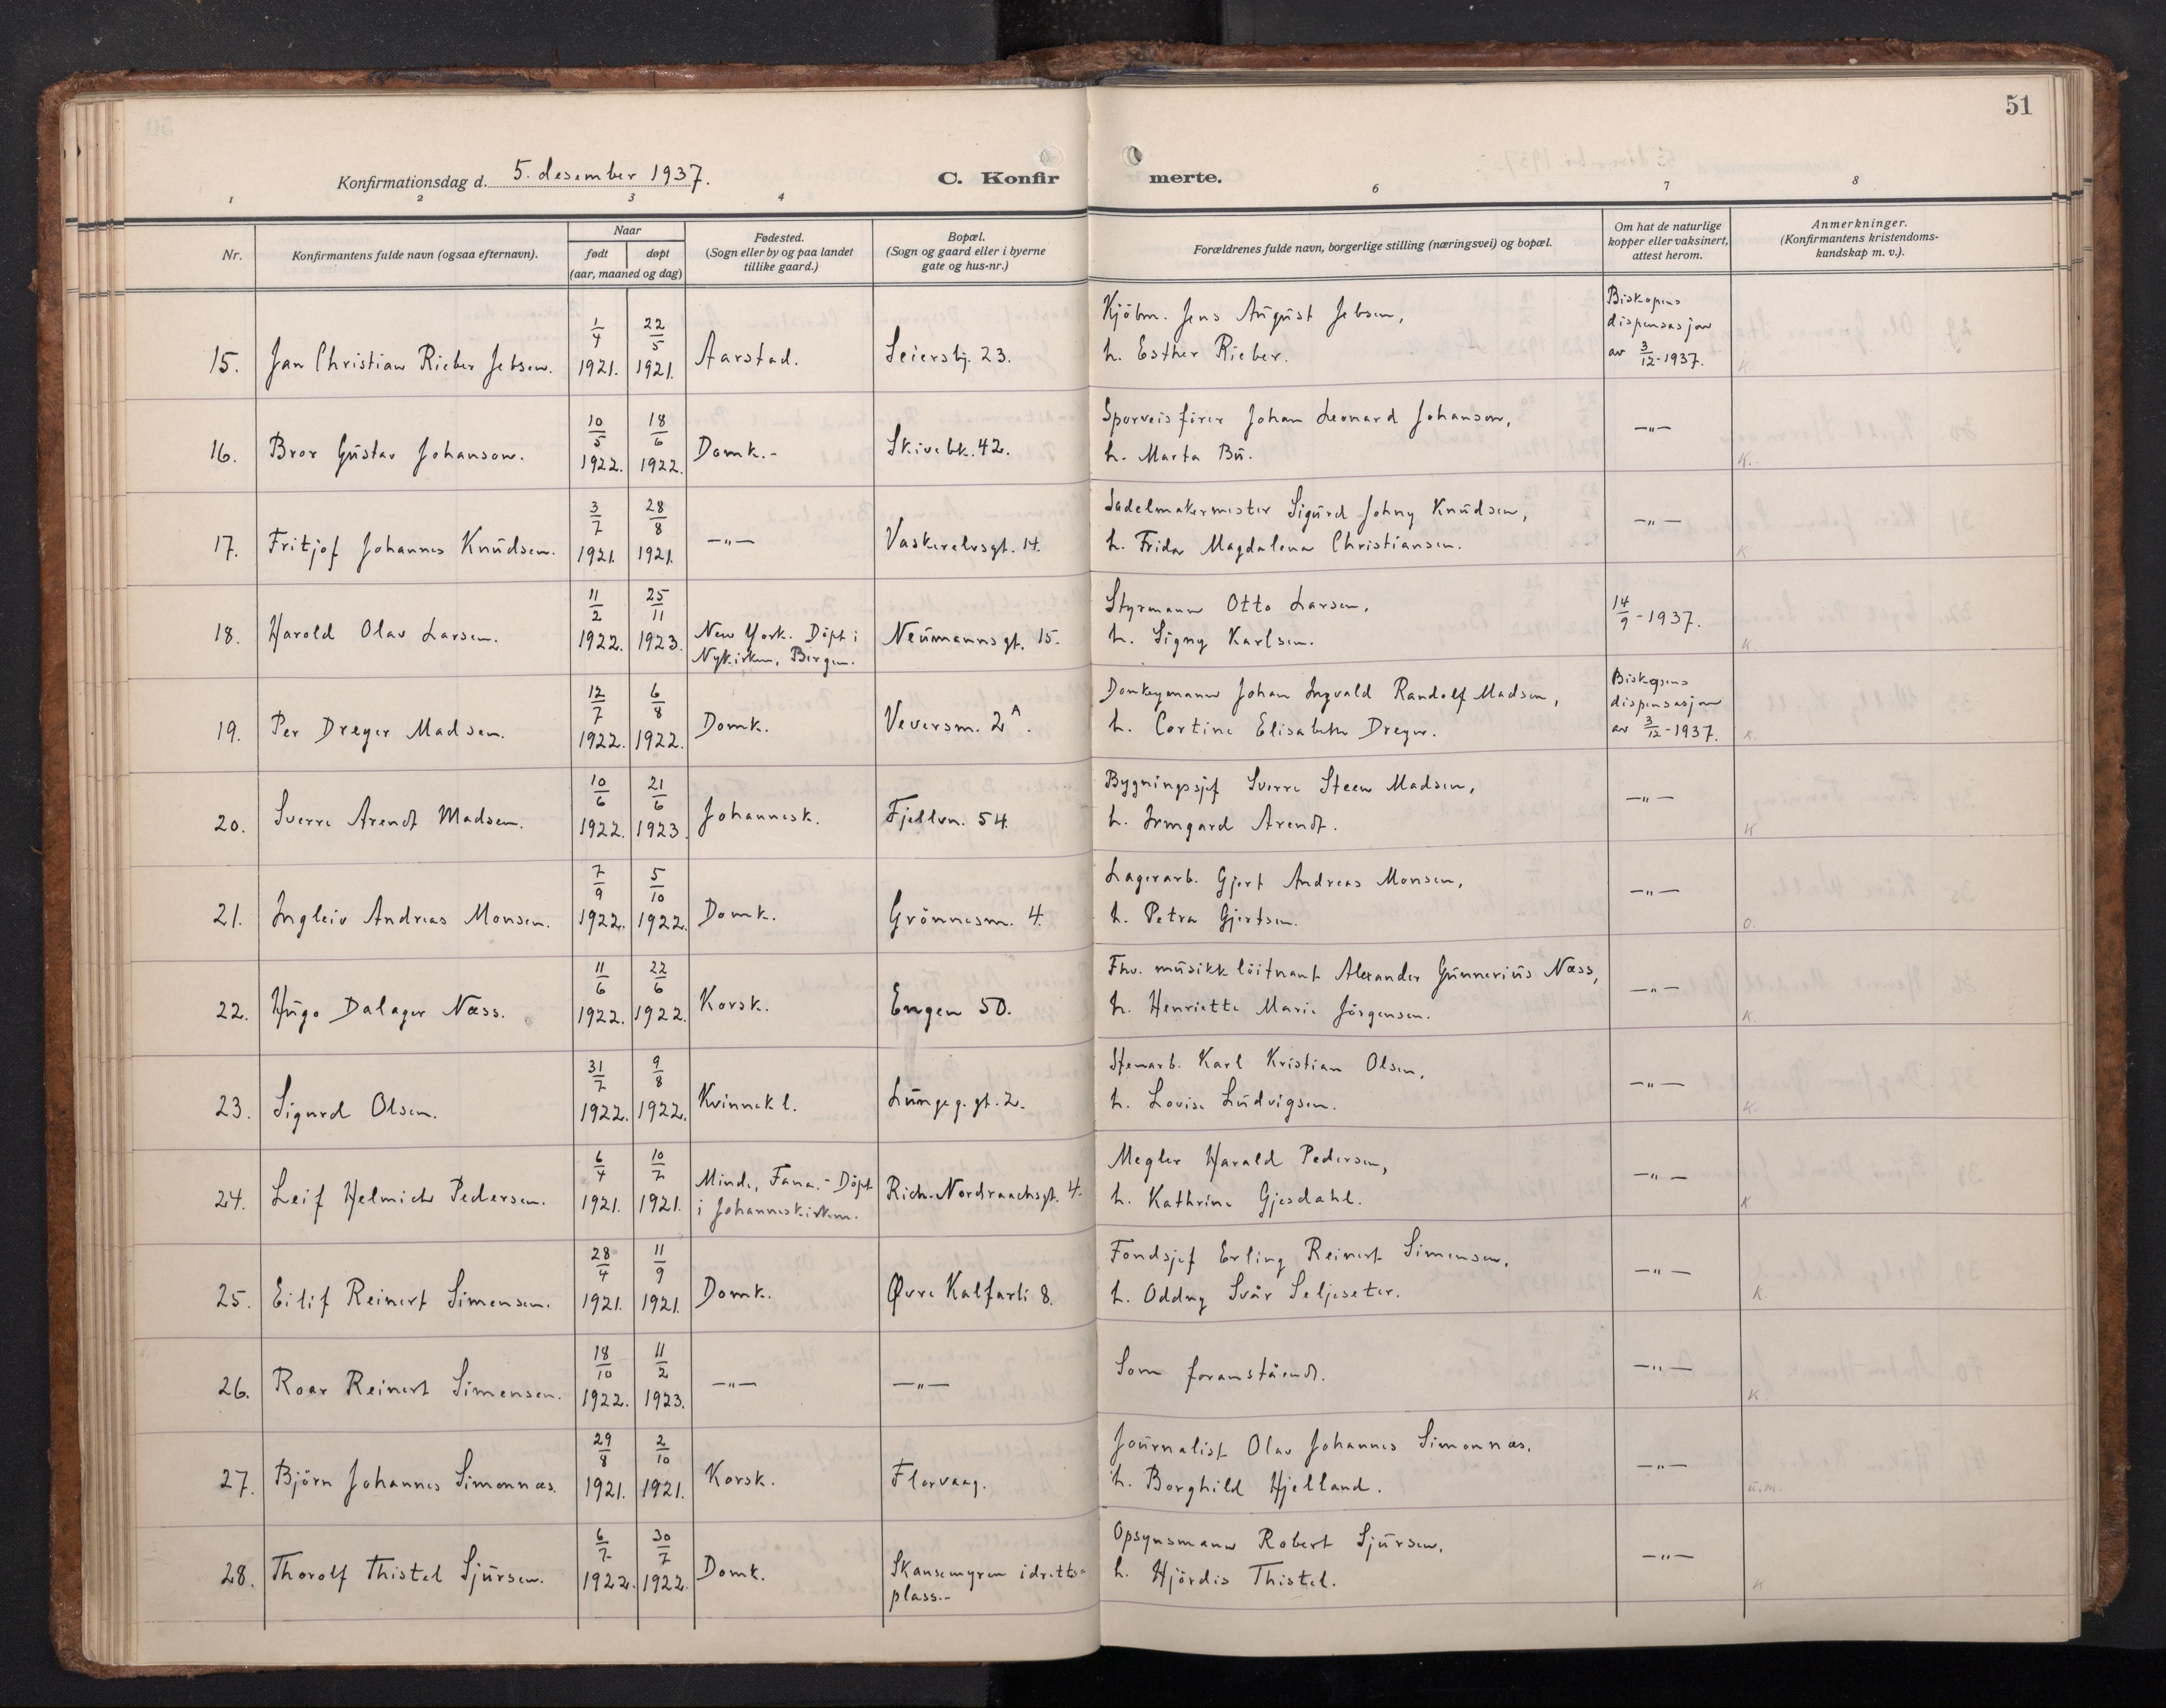 51
Konfirmationsdag d. 5. desember 1937.
C. Konfirmerte.
1 2 3 4 6 7 8
Nr.
Konfirmantens fulde navn (ogsaa efternavn).
Naar
født døpt
(aar, maaned og dag)
Fødested.
(Sogn eller by og paa landet
tillike gaard.)
Bopæl.
(Sogn og gaard eller i byerne
gate og hus-nr.)
Forældrenes fulde navn, borgerlige stilling (næringsvei) og bopæl.
Om hat de naturlige
kopper eller vaksinert,
attest herom.
Anmerkninger.
(Konfirmantens kristendoms-
kundskap m. v.).
15. Jan Christian Rieber Jebsen. 1/4 1921. 22/5 1921. Aarstad. Seiersbj. 23.
Kjöbm. Jens August Jebsen,
h. Esther Rieber.
Biskopens
dispensasjon
av 3/12-1937.
K.
16. Bror Gustav Johanson. 10/5 1922. 18/6 1922. Domk.- Skivebk. 42.
Sporveisfører Johan Leonard Johanson,
h. Marta Bu.
—"—
K.
17. Fritjof Johannes Knudsen. 3/7 1921. 28/8 1921. —"— Vaskerelvsgt. 14.
Sadelmakermester Sigurd Johny Knudsen,
h. Frida Magdalena Christiansen.
—"—
K
18. Harold Olav Larsen. 11/2 1922. 25/11 1923. New York. Döpt i
Nykirken, Bergen.
Neumannsgt. 15.
Styrmann Otto Larsen,
h. Signy Karlsen.
14/9-1937.
K.
19. Per Dreyer Madsen. 12/7 1922. 6/8 1922. Domk. Veversm. 2A.
Donkeymann Johan Ingvald Randolf Madsen,
h. Cortine Elisabeth Dreyer.
Biskopens
dispensasjon
av 3/12-1937.
K.
20. Sverre Arendt Madsen. 10/6 1922. 21/6 1923. Johannesk. Fjellvn. 54.
Bygningssjef Sverre Steen Madsen,
h. Irmgard Arendt.
—"—
K
21. Ingleiv Andreas Monsen. 7/9 1922. 5/10 1922. Domk. Grönnesm. 4.
Lagerarb. Gjert Andreas Monsen,
h. Petra Gjertsen.
—"—
O.
22. Hugo Dalager Næss. 11/6 1922. 22/6 1922. Korsk. Engen 50.
Fhv. musikklöitnant Alexander Gunnerius Næss,
h. Henriette Marie Jörgensen.
—"—
K.
23. Sigurd Olsen. 31/7 1922. 9/8 1922. Kvinnekl. Lungeg. gt. 2.
Stenarb. Karl Kristian Olsen,
h. Lovise Ludvigsen.
—"—
K.
24. Leif Helmich Pedersen. 6/4 1921. 10/7 1921. Minde, Fana.- Döpt
i Johanneskirken.
Rich. Nordraachsgt. 4.
Megler Harald Pedersen,
h. Kathrine Gjesdahl.
—"—
K
25. Eilif Reinert Simensen. 28/4 1921. 11/9 1921. Domk. Øvre Kalfarli 8.
Fondsjef Erling Reinert Simensen,
h. Oddny Svår Seljeseter.
—"—
K.
26. Roar Reinert Simensen. 18/10 1922. 11/2 1923. —"— —"—
Som foranstående.
—"—
K.
27. Björn Johannes Simonnæs. 29/8 1921. 2/10 1921. Korsk. Florvaag.
Journalist Olav Johannes Simonnæs,
h. Borghild Hjelland.
—"—
u.m.
28. Thorolf Thistel Sjursen. 6/7 1922. 30/7 1922. Domk. Skansemyren idretts-
plass.-
Opsynsmann Robert Sjursen,
h. Hjördis Thistel.
—"—
K